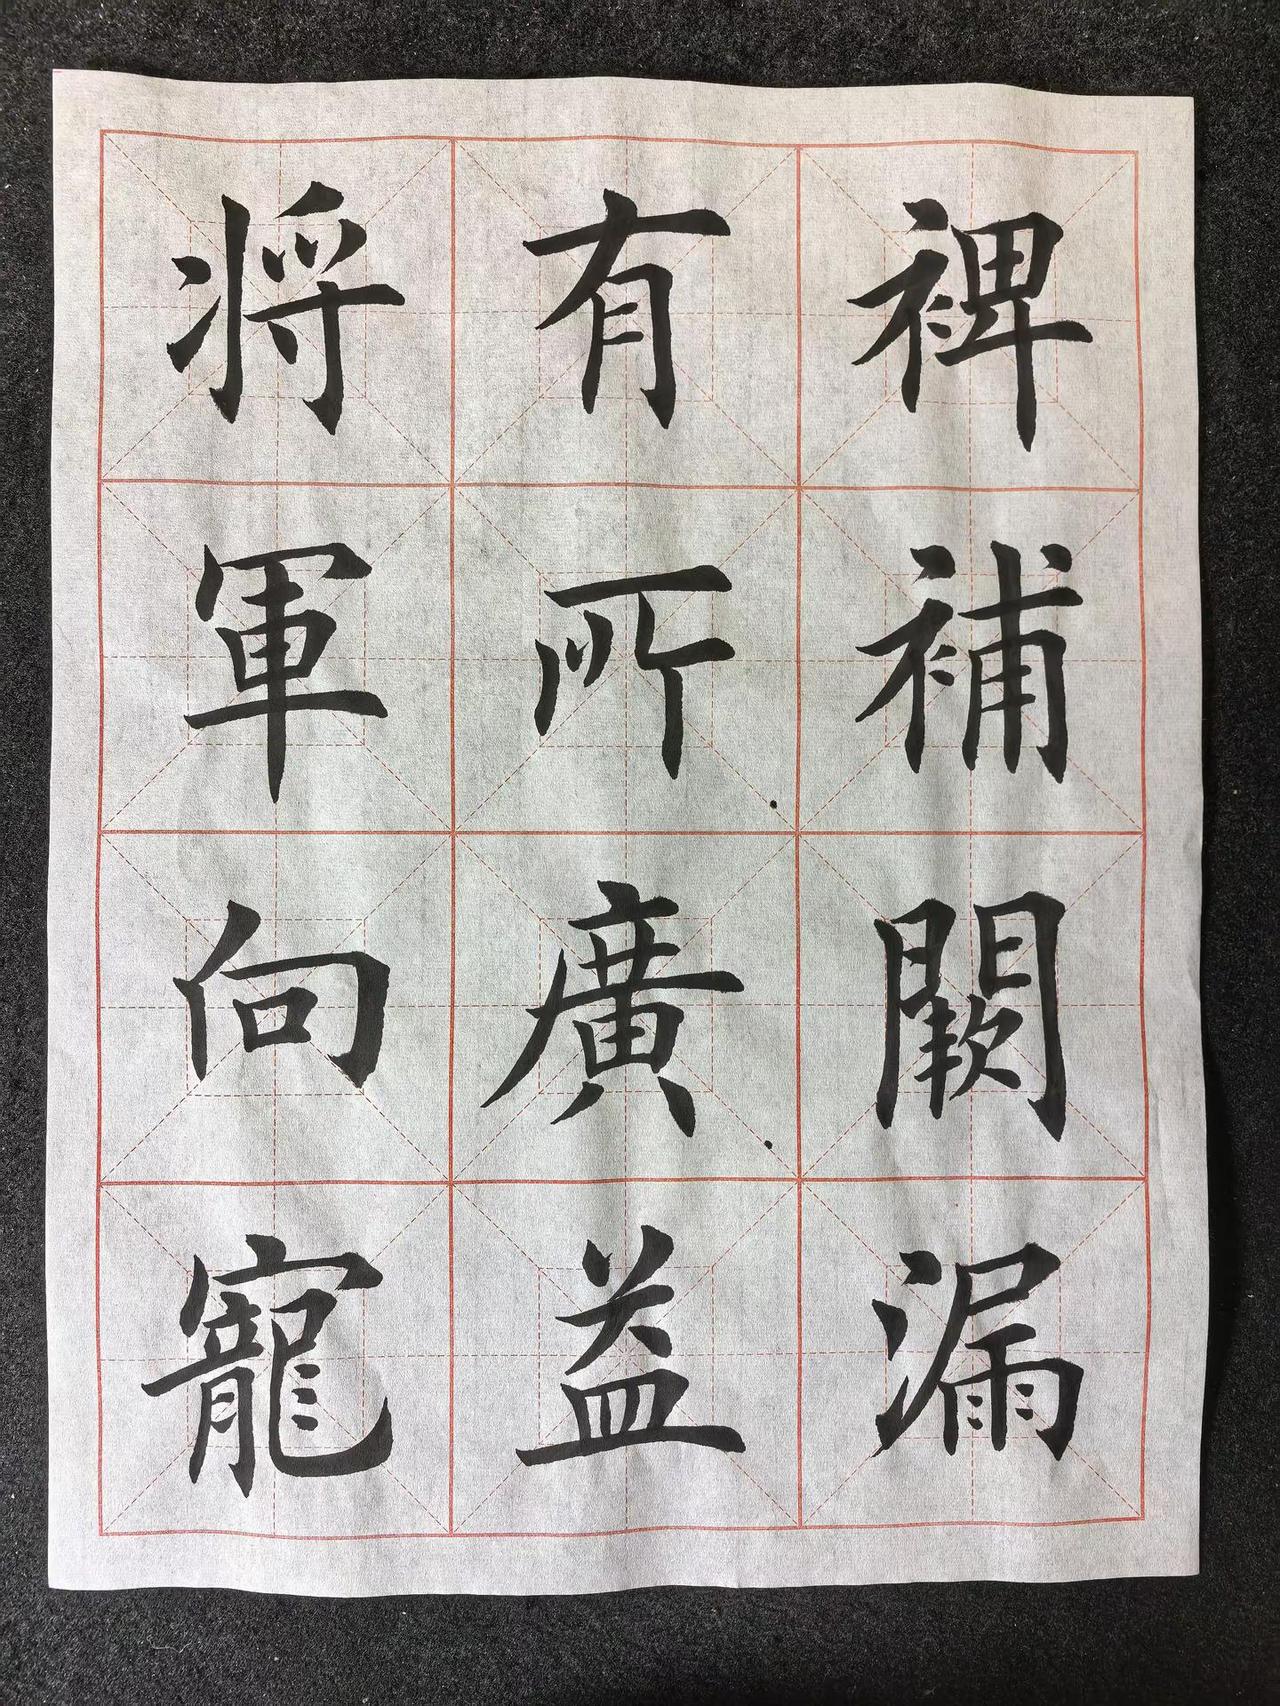 裨補闕漏
有所廣益
将軍向寵